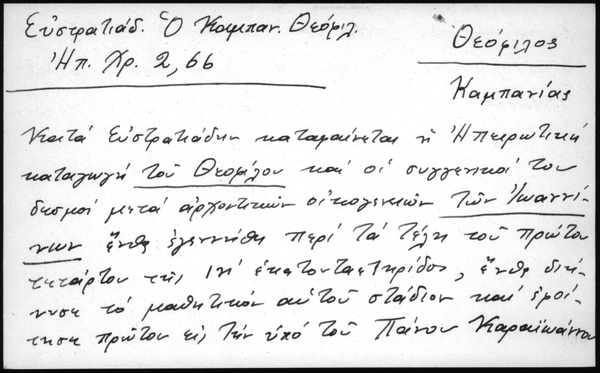 Εὐστρατιάδ. Ὁ Καμπαν. Θεόφιλ.
Ἠπ. Χρ. 2, 66
Θεόφιλος
Καμπανίας
Κατά Εὐστρατιάδην καταφαίνεται ἡ Ἠπειρωτική
καταγωγή τοῦ Θεοφίλου καί οἱ συγγενικοί του
δεσμοί μετά ἀρχοντικῶν οἰκογενειῶν τῶν Ἰωαννί-
νων ἔνθα ἐγεννήθη περί τά τέλη τοῦ πρώτου
τετάρτου τῆς ΙΗ' ἑκατονταετηρίδος, ἔνθα διή-
νυσε τό μαθητικόν αὐτοῦ στάδιον καί ἐφοί-
τησε πρῶτον εἰς τήν ὑπό τοῦ Πάνου Καραϊωάννου